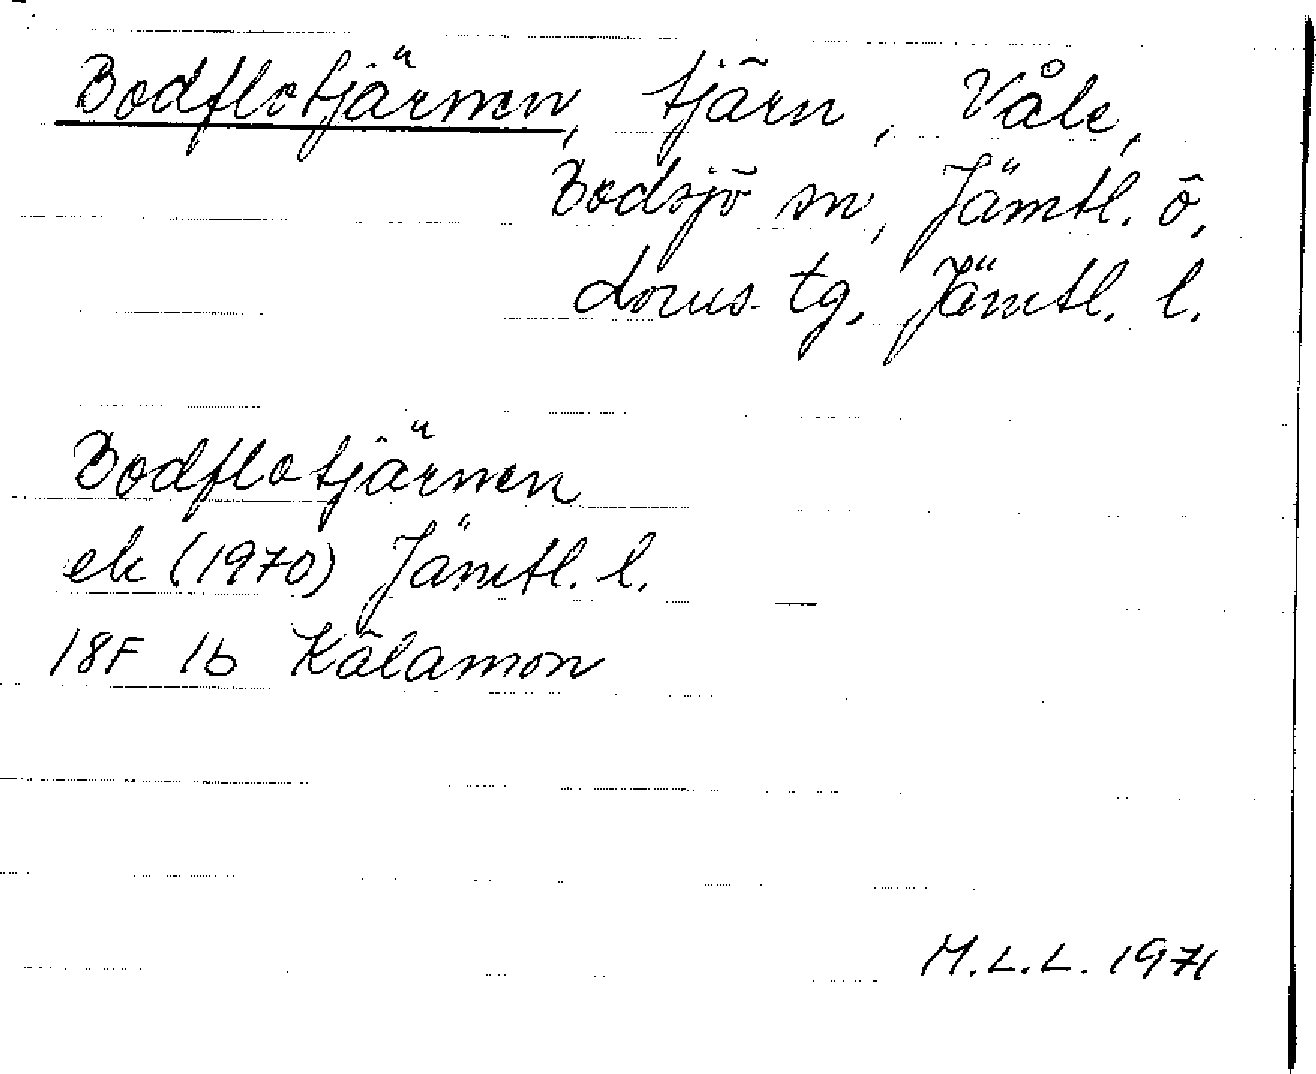 Bodflotjärnen, tjärn, Våle,
Bodsjö sn, Jämtl. ö.
doms. tg, Jämtl. l.
Bodflotjärnen
ek (1970) Jämtl. l.
18F 1b Kälamon
M.L.L. 1971